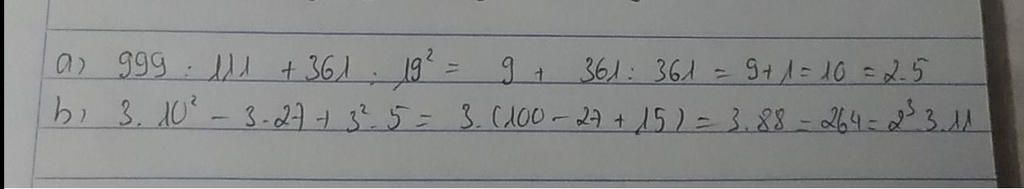 a) 999 : 111 + 361 : 19² = 9 + 361 : 361 = 9+1 = 10 = 2.5
b) 3.10² - 3.27 + 3².5 = 3.(100 - 27 + 15) = 3.88 = 264 = 2³.3.11